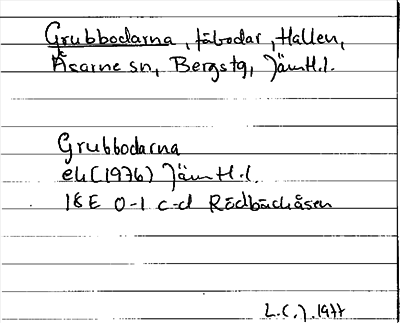 Grubbodarna, fäbodar, Hallen,
Åsarne sn, Bergs tg, Jämtl.l.
Grubbodarna
ek (1976) Jämtl.l.
18E 0-1 c-d Rödbäckåsen
L.C.J. 1977